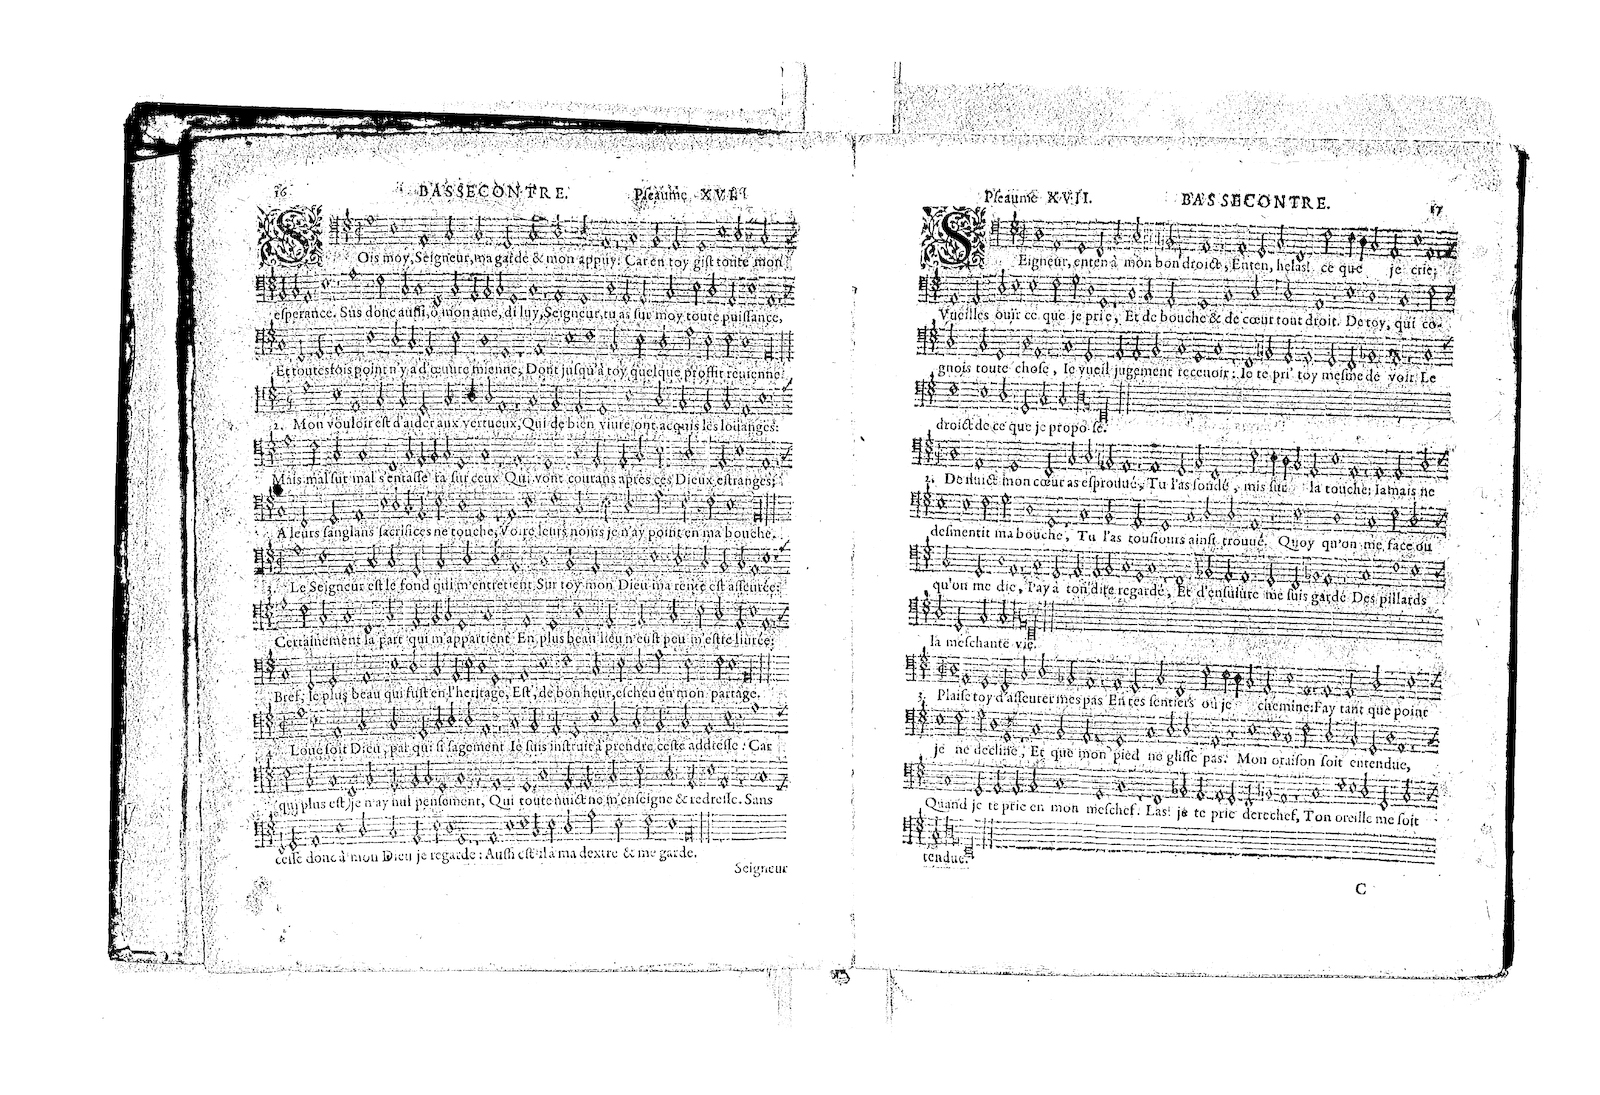 16 BASSECONTRE. Pseaume XVI.
SOis moy, Seigneur, ma garde & mon appuy: Car en toy gist toute mon
esperance. Sus donc aussi, ô mon ame, di luy, Seigneur, tu as sur moy toute puissance,
Et toutesfois point n'y a d'œuure mienne, Dont jusqu'à toy quelque proffit reuienne.
2. Mon vouloir est d'aider aux vertueux, Qui de bien viure ont acquis les louanges:
Mais mal sur mal s'entassera sur ceux Qui vont courans apres ces Dieux estranges;
A leurs sanglans sacrifices ne touche, Voire leurs noms je n'ay point en ma bouche.
3. Le Seigneur est le fond qui m'entretient, Sur toy mon Dieu ma rente est asseurée;
Certainement la part qui m'appartient En plus beau lieu n'eust peu m'estre liurée;
Bref, le plus beau qui fust en l'heritage, Est, de bon heur, escheu en mon partage.
4. Loué soit Dieu, par qui si sagement Ie suis instruit à prendre ceste addresse: Car
qui plus est, je n'ay nul pensement, Qui toute nuict ne m'enseigne & redresse. Sans
cesse donc à mon Dieu je regarde: Aussi est-il à ma dextre & me garde.
Seigneur
Pseaume XVII. BASSECONTRE. 17
SEigneur, enten à mon bon droict, Enten, helas! ce que je crie;
Vueilles ouïr ce que je prie, Et de bouche & de cœur tout droit. De toy, qui co-
gnois toute chose, Ie vueil jugement receuoir: Ie te pri' toy mesme de voir Le
droict de ce que je propose.
2. De nuict mon cœur as esprouué, Tu l'as sondé, mis sur la touche; Iamais ne
desmentit ma bouche, Tu l'as tousiours ainsi trouué. Quoy qu'on me face ou
qu'on me die, I'ay à ton dire regardé, Et d'ensuiure me suis gardé Des pillards
la meschante vie.
3. Plaise toy d'asseurer mes pas En tes sentiers où je chemine: Fay tant que point
je ne decline, Et que mon pied ne glisse pas. Mon oraison soit entendue,
Quand je te prie en mon meschef. Las! je te prie derechef, Ton oreille me soit
tendue.
C